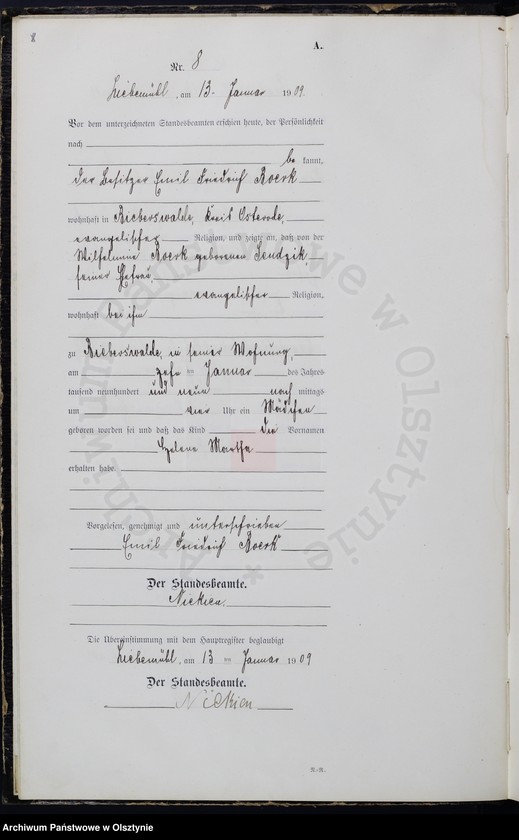 8
A.
Nr. 8
Liebemühl, am 13. Januar 1909.
Vor dem unterzeichneten Standesbeamten erschien heute, der Persönlichkeit
nach
be kannt,
der Besitzer Emil Friedrich Boerk
wohnhaft in Bieberswalde, Kreis Osterode,
evangelischer Religion, und zeigte an, daß von der
Wilhelmine Boerk geborenen Sendzik,
seiner Ehefrau,
evangelischer Religion,
wohnhaft bei ihm
zu Bieberswalde, in seiner Wohnung,
am zehn ten Januar des Jahres
tausend neunhundert und neun nach mittags
um vier Uhr ein Mädchen
geboren worden sei und daß das Kind die Vornamen
Helene Martha
erhalten habe.
Vorgelesen, genehmigt und unterschrieben
Emil Friedrich Boerk
Der Standesbeamte.
Nickien.
Die Übereinstimmung mit dem Hauptregister beglaubigt
Liebemühl, am 13 ten Januar 1909
Der Standesbeamte.
Nickien
R.-R.
Archiwum Państwowe w Olsztynie *
Archiwum Państwowe w Olsztynie